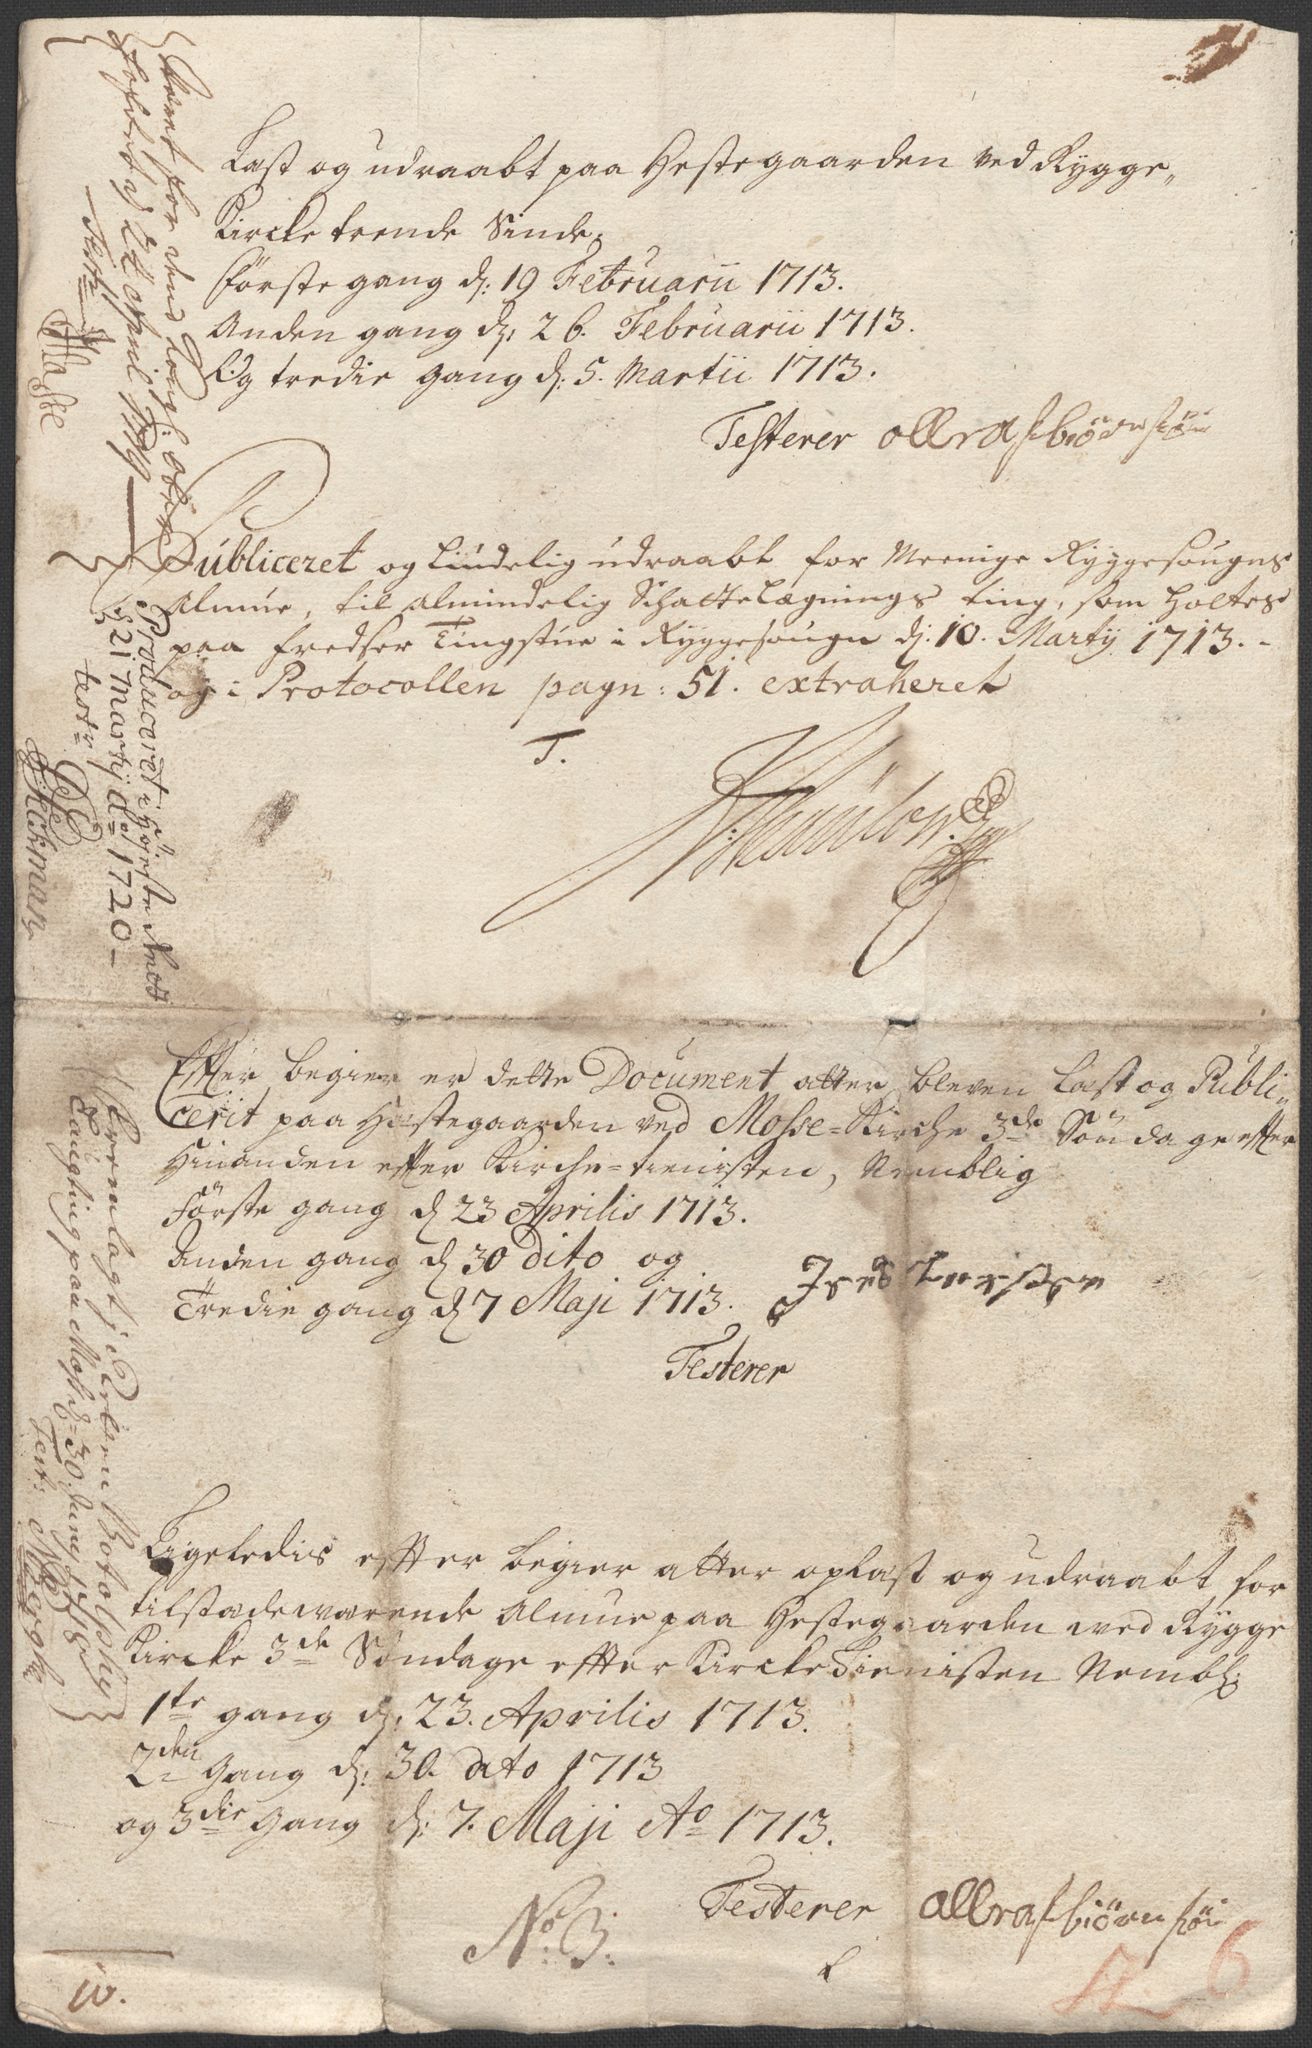 Læst og udraabt paa Hestegaarden ved Rygge„
Kircke trende Sinde,
første gang d: 19 Februarii 1713.
Anden gang d: 26. Februarii 1713.
Og tredie gang d: 5. Martii 1713.
Testerer
Publiceret og liudelig udraabt for Meenige Ryggesougns
Almue, til Almindelig Schattelægnings ting, som holtes
paa fredser Tingstue i Ryggesougn d: 10. Martij 1713. -
og i Protocollen pagn: 51. extraheret
T.
Effter begier er dette Document atter bleven Læst og Publi„
cerit paa Hestegaarden ved Mosse=Kirche 3de Søndage effter
Hinanden effter Kirche=tienisten, Nemblig
Første gang d 23 Aprilis 1713.
Anden gang d 30 dito og
Tredie gang d 7 Maji 1713.
Testerer
Ligeledis effter begier atter oplæst og udraabt for
tilstædeværende Almue paa Hestegaarden ved Rygge
Kircke 3de Søndage effter Kircke Tienisten Nembl:
1te gang d: 23. Aprilis 1713.
2den Gang d: 30. dito 1713
og 3die Gang d: 7. Maji Ao 1713.
Testerer
No: 3:
10.
6
Læst for
d 22 April
Test
Produceret i Højeste Rett
d 21 Martij Ao 1720 -
test
Fremlagt i
Laugting paa Moss d= 30. Junij
Test: